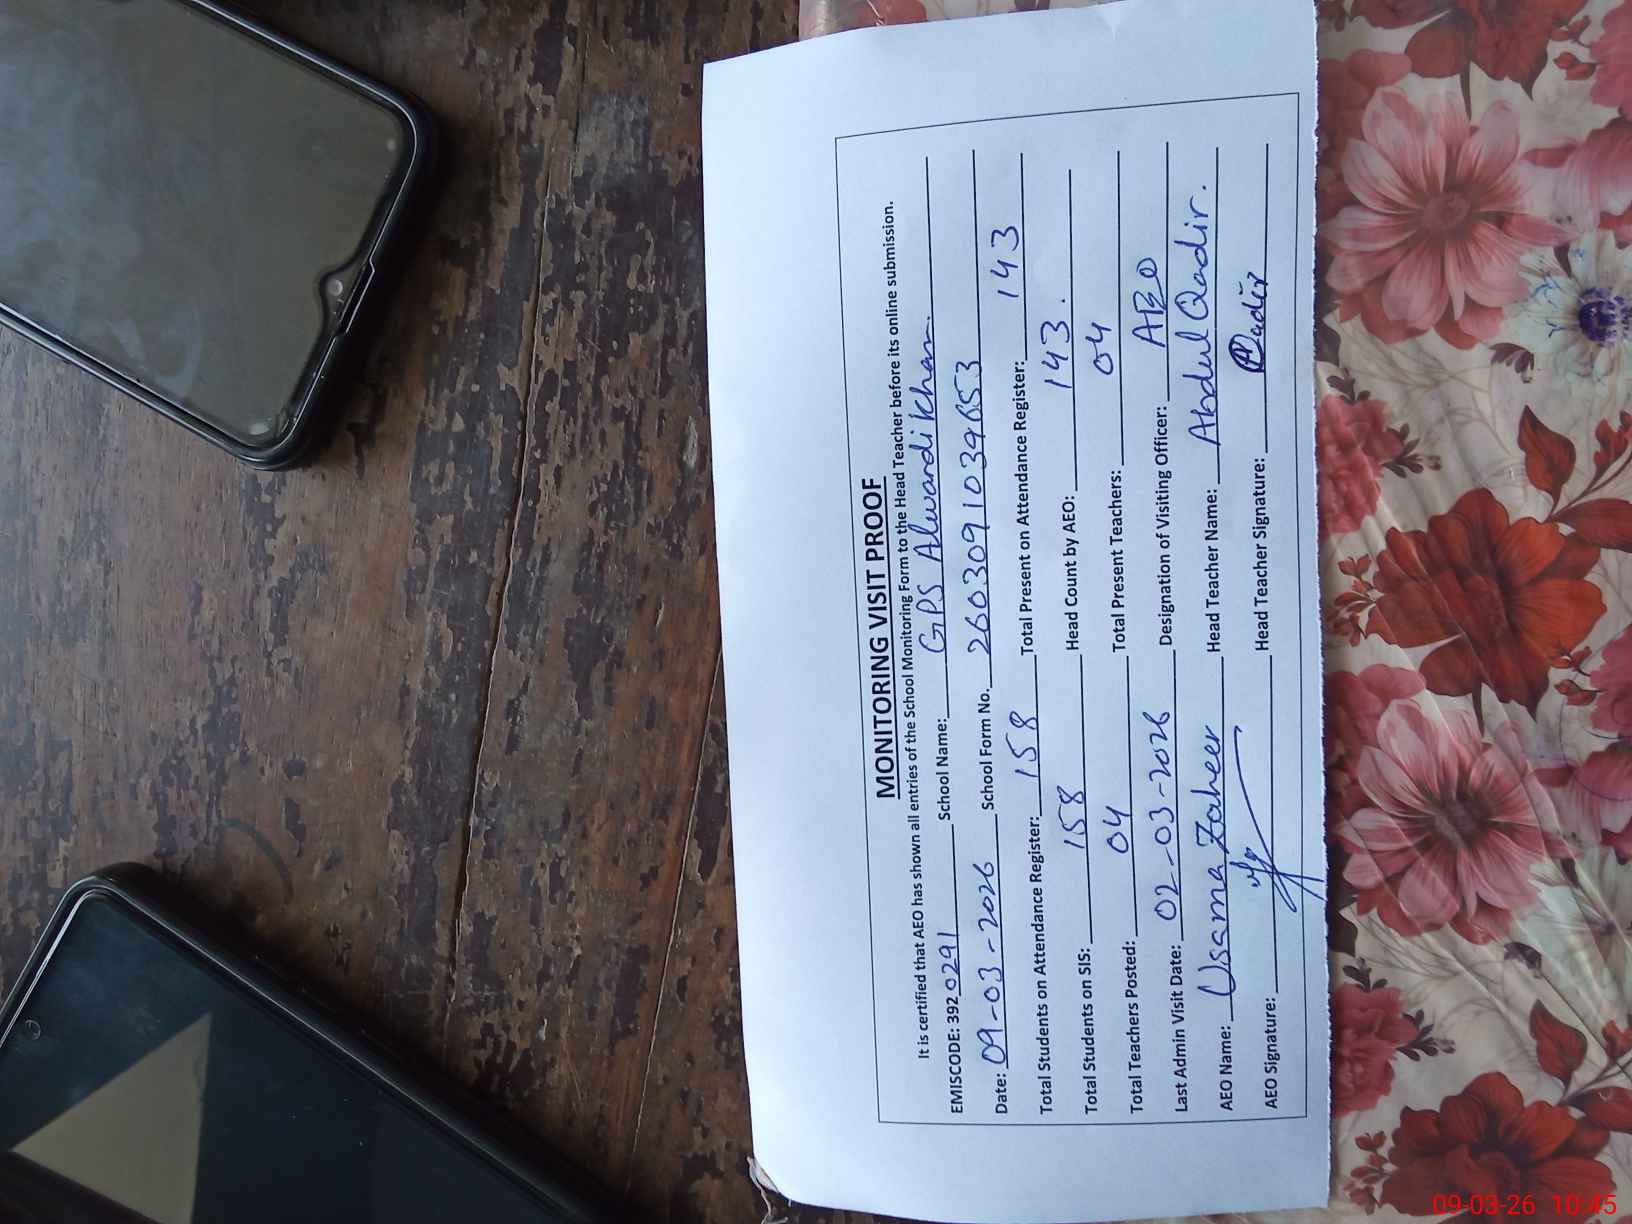 MONITORING VISIT PROOF
It is certified that AEO has shown all entries of the School Monitoring Form to the Head Teacher before its online submission.
EMISCODE: 3920291 School Name: GPS Alwardikhan.
Date: 09-03-2026 School Form No. 260309103653
Total Students on Attendance Register: 158 Total Present on Attendance Register: 143
Total Students on SIS: 158 Head Count by AEO: 143.
Total Teachers Posted: 04 Total Present Teachers: 04
Last Admin Visit Date: 02-03-2026 Designation of Visiting Officer: AEO
AEO Name: Usama Zaheer Head Teacher Name: Abdul Qadir.
AEO Signature: Head Teacher Signature: Qadir
09-03-26 10:45